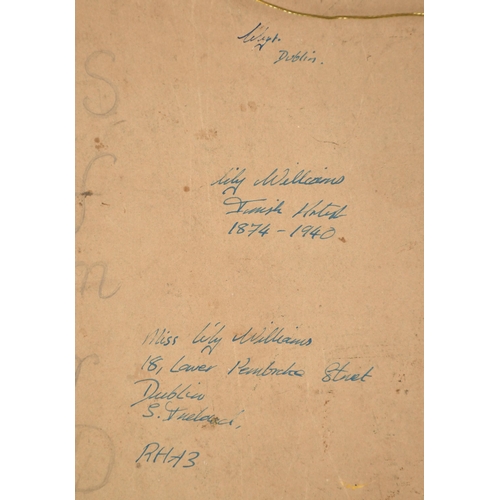 Dublin.
Lily Williams
1874 - 1940
Miss Lily Williams
18, Lower Pembroke Street
Dublin
S. Ireland.
RHA3
S
f
n
r
D